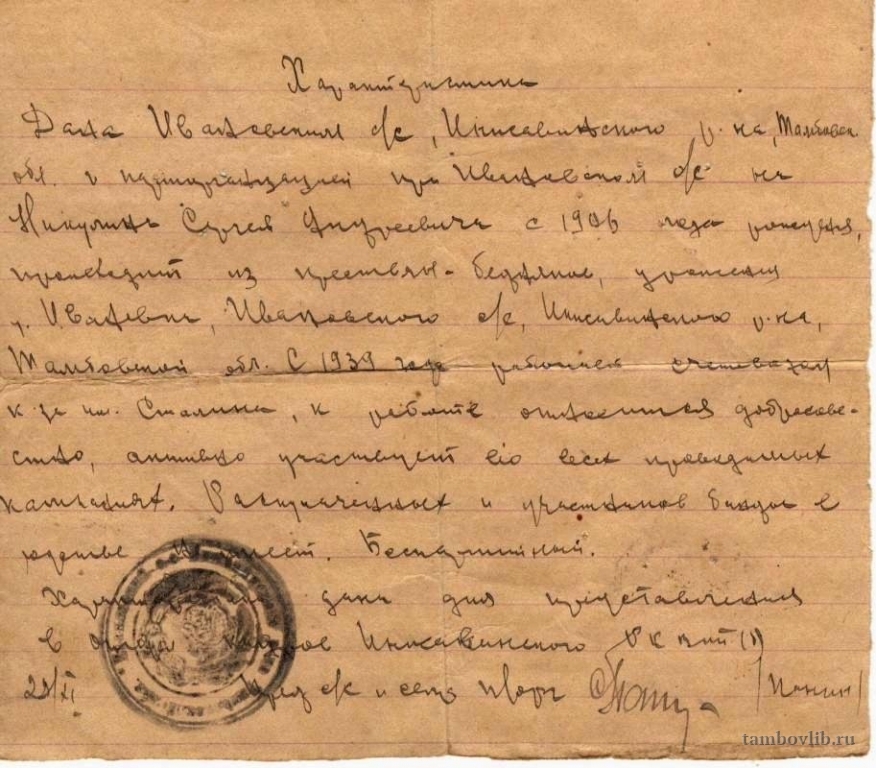 Характеристика
Дана Ивановским с/с, Инжавинского р-на, Тамбовск.
обл. и парторганизацией при Ивановском с/с на
Никулина Сергея Андреевича с 1906 года рождения,
происходит из крестьян-бедняков, уроженец
Ивановского с/с, Инжавинского р-на,
Тамбовской обл. С 1939 года работает счетоводом
к-за им. Сталина, к работе относится добросове-
стно, активно участвует во всех проводимых
кампаниях. Раскулаченных и участников банды в
родстве не имеет. Беспартийный.
Характеристика дана для представления
в отдел кадров Инжавинского РК ВКП(б)
Пред с/с и секр
tambovlib.ru